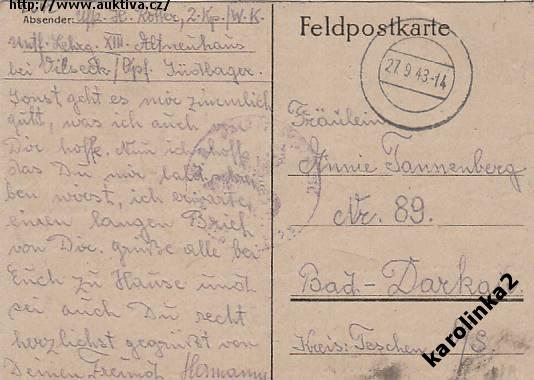 http://www.auktiva.cz/
Absender: Uffz. H. Koller, 2. Kp./W.K.
Untf. Lehrg. XIII. Altneuhaus
bei Vilseck/Opf. Südlager.
Sonst geht es mir ziemlich
gutt, was ich auch von
Dir hoffe. Nun ich hoffe
das Du mir bald schrei
ben wirst, ich erwarte
einen langen Brief
von Dir. grüße alle bei
Euch zu Hause und
sei auch Du recht
herzlichst gegrüßt von
Deinen Freund Hermann
Feldpostkarte
27.9.43-14
Fräulein
Annie Tannenberg
Nr. 89.
Bad-Darkau
Kreis: Teschen /S
karolinka2